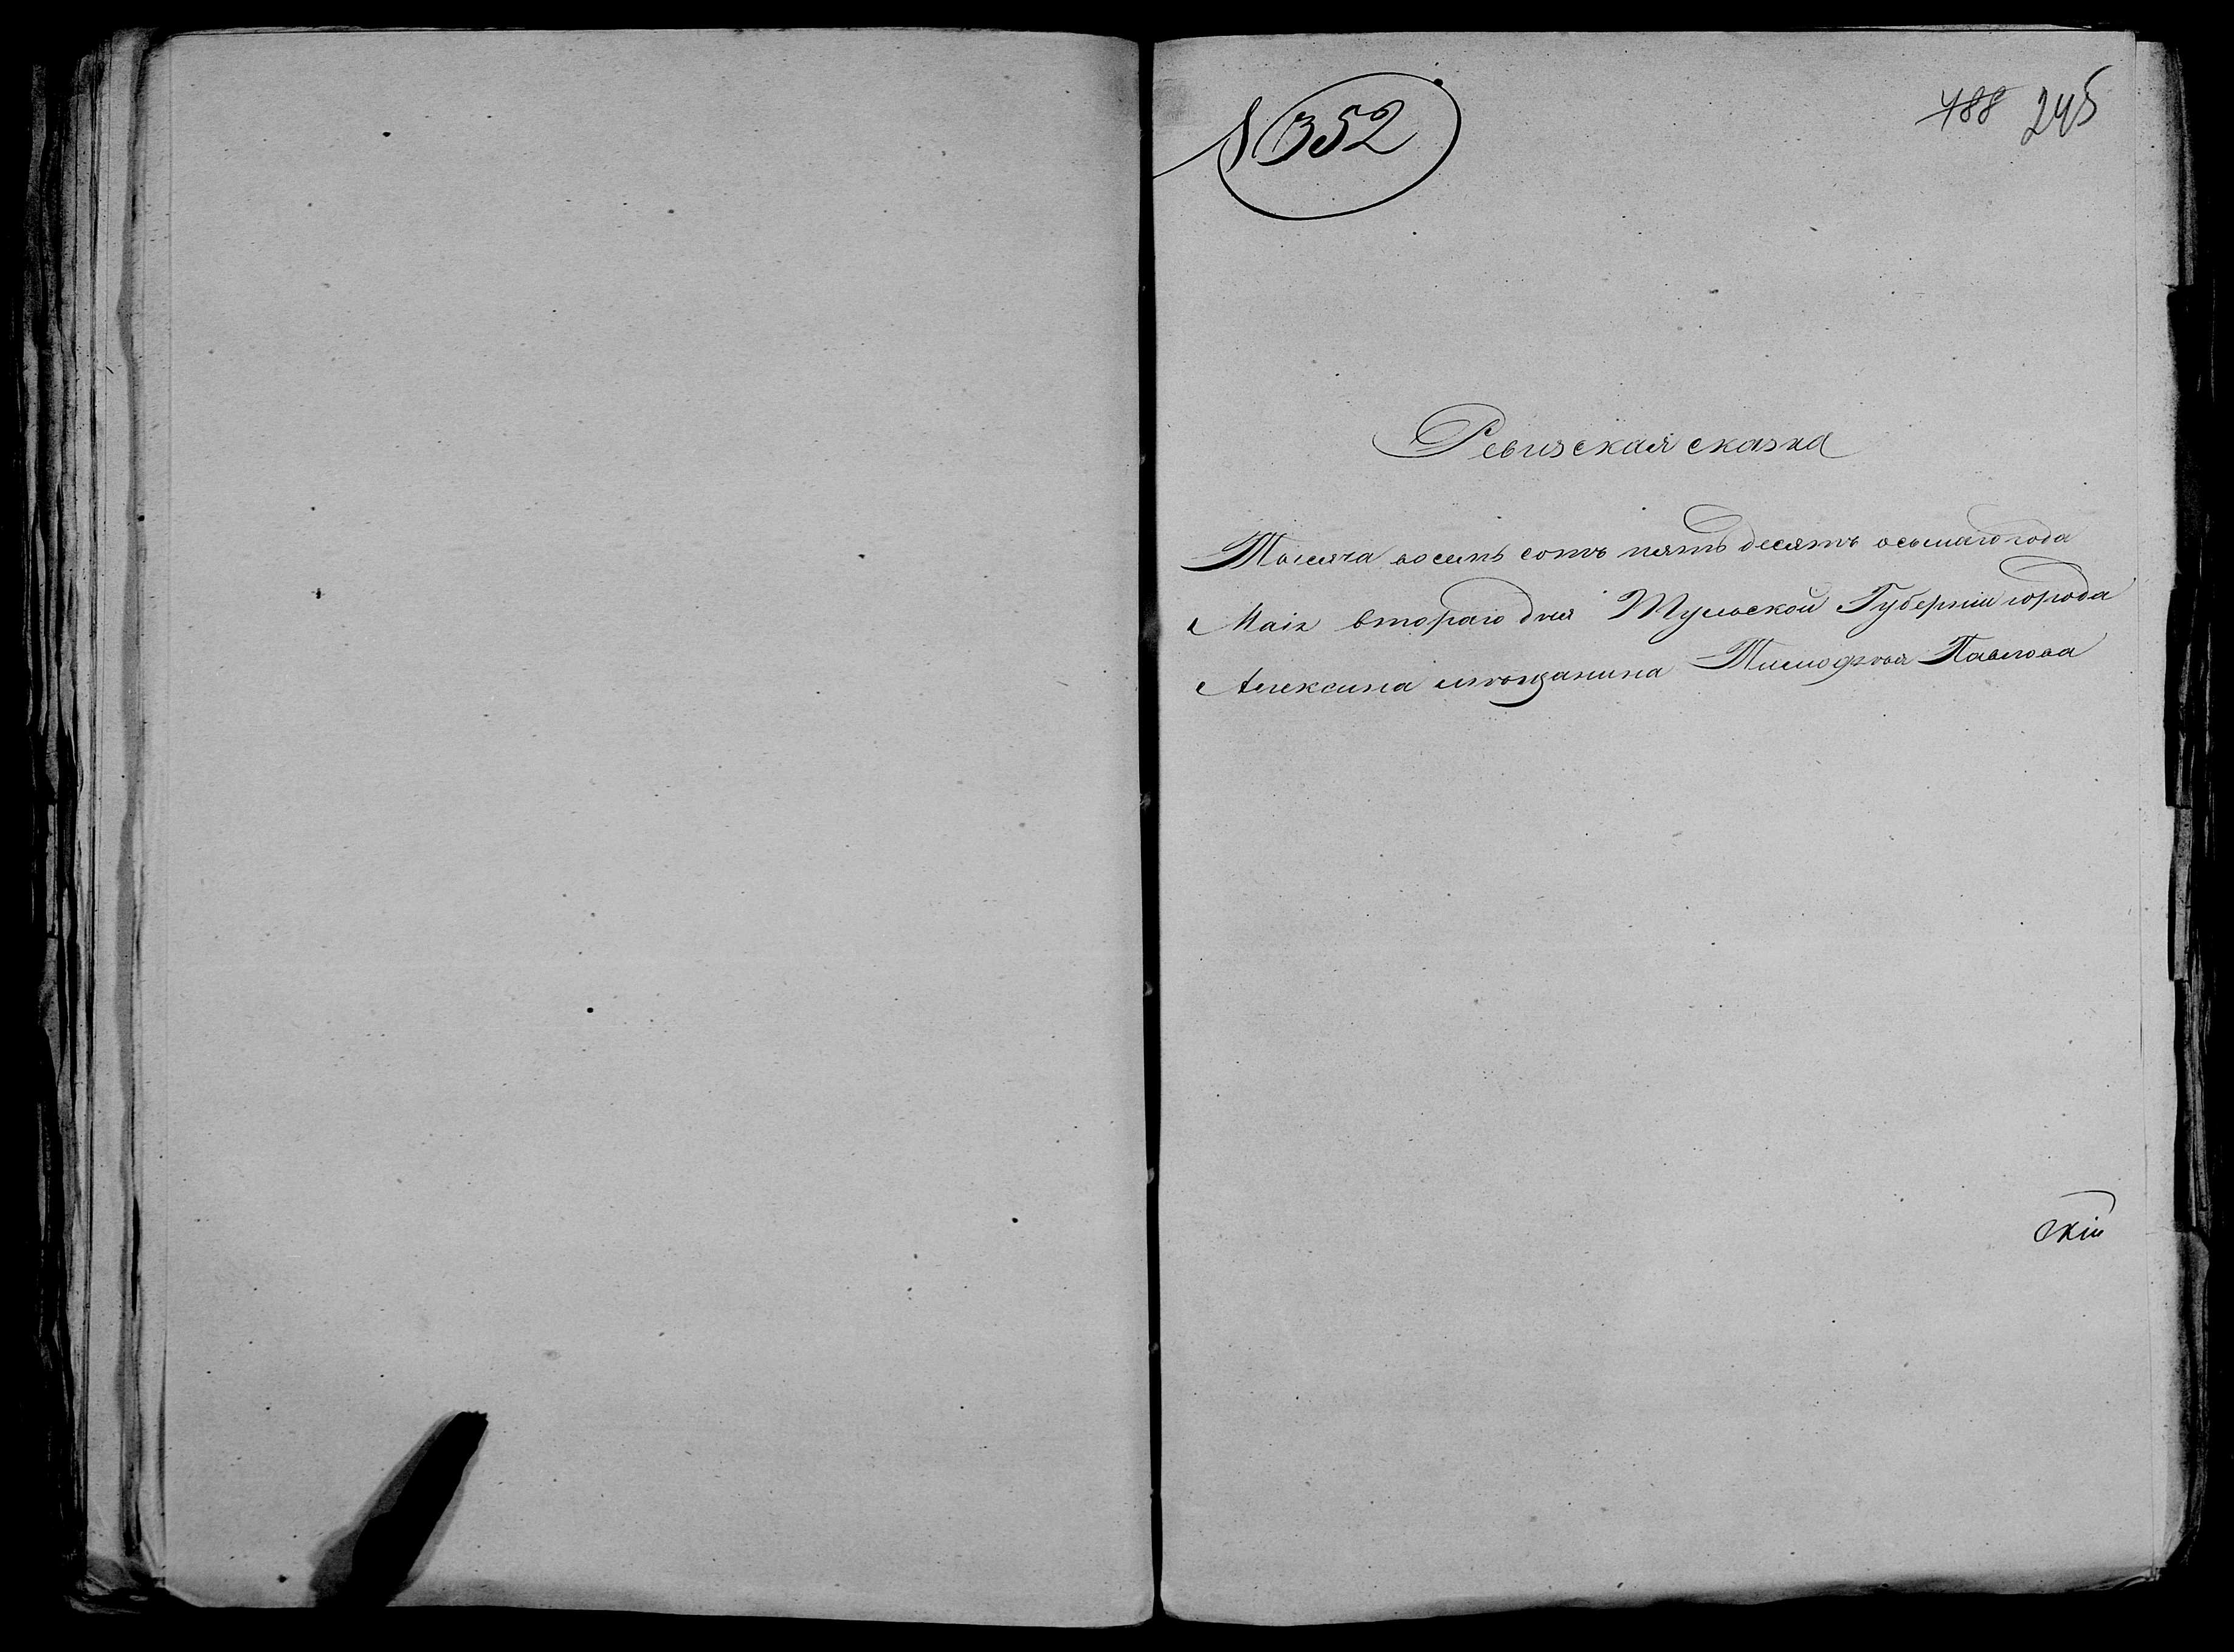 352
488 245
Ревизская сказка
Тысяча восемь сотъ пять десятъ осьмаго года
Маія втораго дня Тульской Губерніи города
Алексина мѣщанина Тимофѣя Павлова
скій